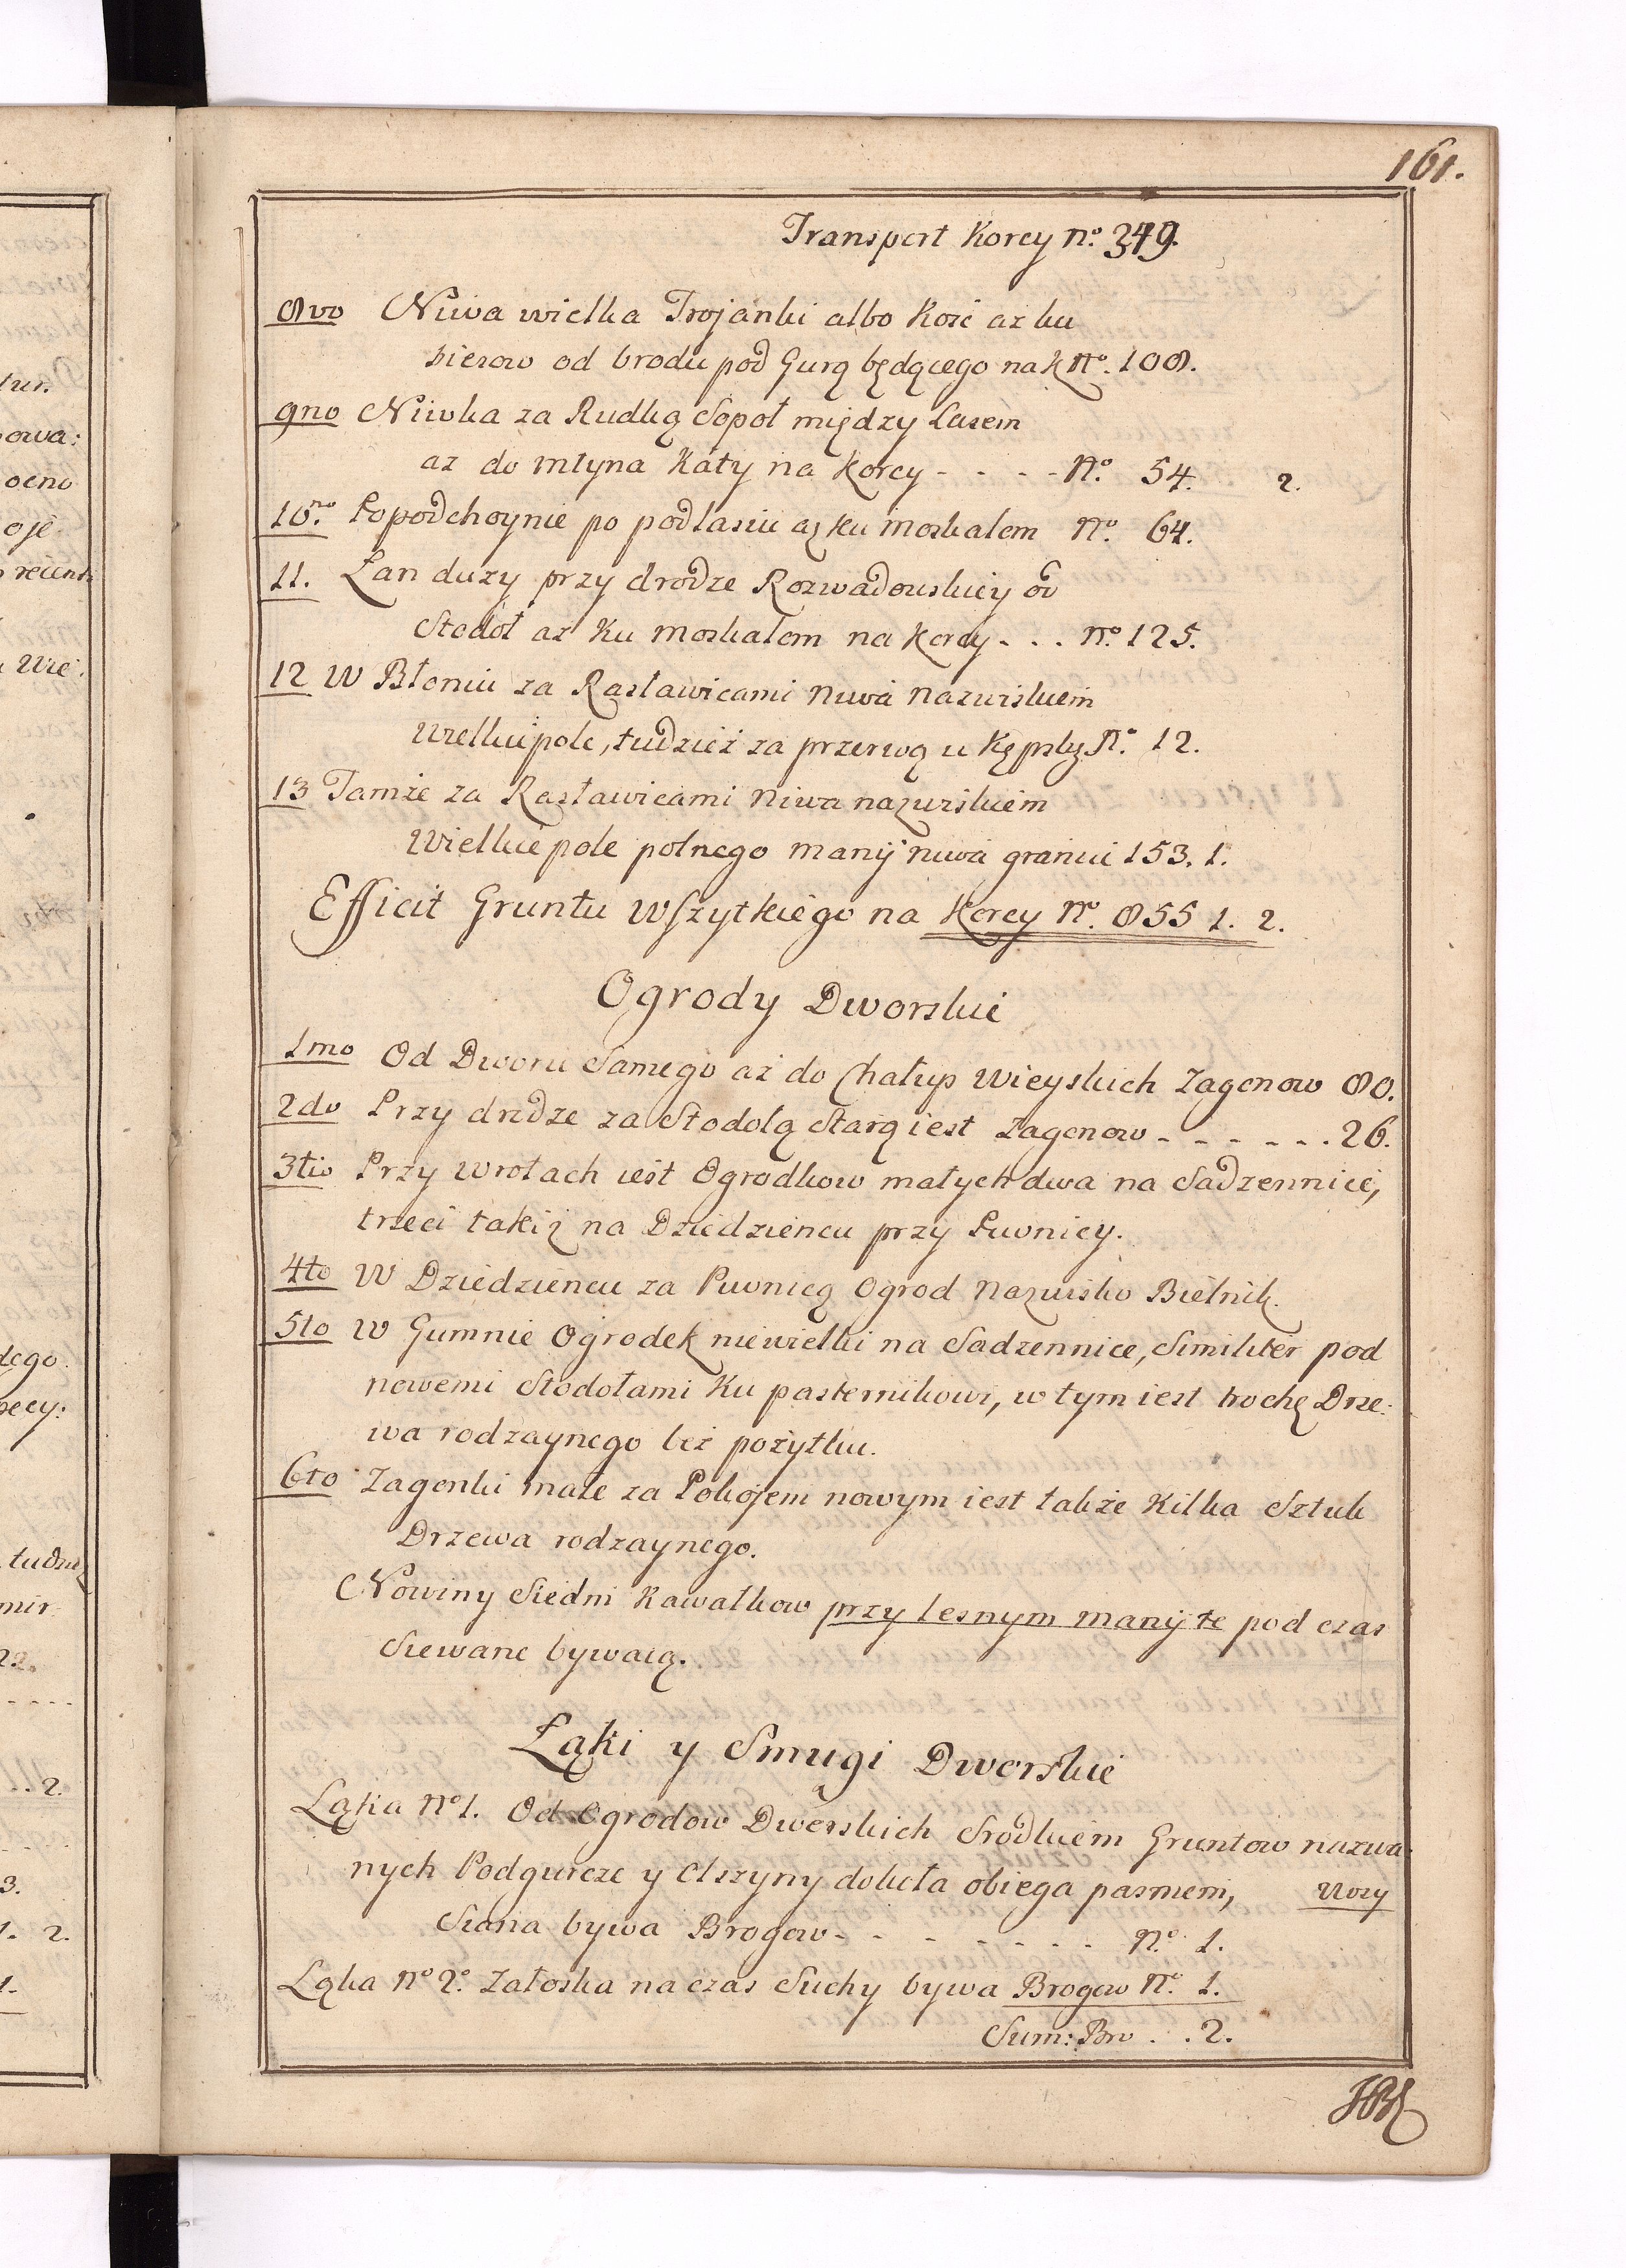 161.
Transport Korcy No. 349.
8vo Niwa wielka Trojanki albo Kość aż ku
od brodu pod Gurą będącego na K No. 108.
9no Niwka za Rudką Sopot między Lasem
aż do młyna Kąty na Korcy - - - - No. 54. 2.
10mo. Popodchoynie po podlasiu aż ku moskalom No. 64.
11. Łan duży przy drodze Rozwadowskiey od
Stodoł aż Ku moskalom na Korcy - . . No. 125.
12 W Błoniu za Rasławicami niwa nazwiskiem
Wielkiepole, tudzież za przerwą u No. 12.
13 Tamże za Rasławicami niwa nazwiskiem
Wielkie pole polnego many niwa 153. 1.
Efficit Gruntu Wszytkiego na Korcy No. 855 1. 2.
Ogrody Dworskie
1mo Od Dworu Samego aż do Chałup Wieyskich Zagonow 80.
2do Przy drodze za Stodolą Starą iest Zagonow - - - - . . 26.
3tio Przy Wrotach iest Ogrodkow małych dwa na Sadzennice,
trzeci takiż na Dziedzieńcu przy Piwnicy.
4to W Dziedzieńcu za Piwnicą Ogrod nazwisko Bielnik.
5to W Gumnie Ogrodek niewielki na Sadzennice, Similiter pod
nowemi Stodołami Ku pasternikowi, w tym iest trochę Drze:
wa rodzaynego bez pożytku.
6to Zagonki małe za Pokojem nowym iest także Kilka Sztuk
Drzewa rodzaynego.
Nowiny Siedm Kawałkow przy lesnym many te pod czas
Siewane bywaią.
Łąki y Smugi Dworskie
Łąka No 1. Od Ogrodow Dworskich Srodkiem Gruntow nazwa:
nych Podgurcze y Olszyny dokoła obiega pasmem, Wozy
Siana bywa Brogow - - - - - - - No. 1.
Łąka No 2o. Zatoska na czas Suchy bywa Brogow No. 1.
Sum: Bro . . 2.